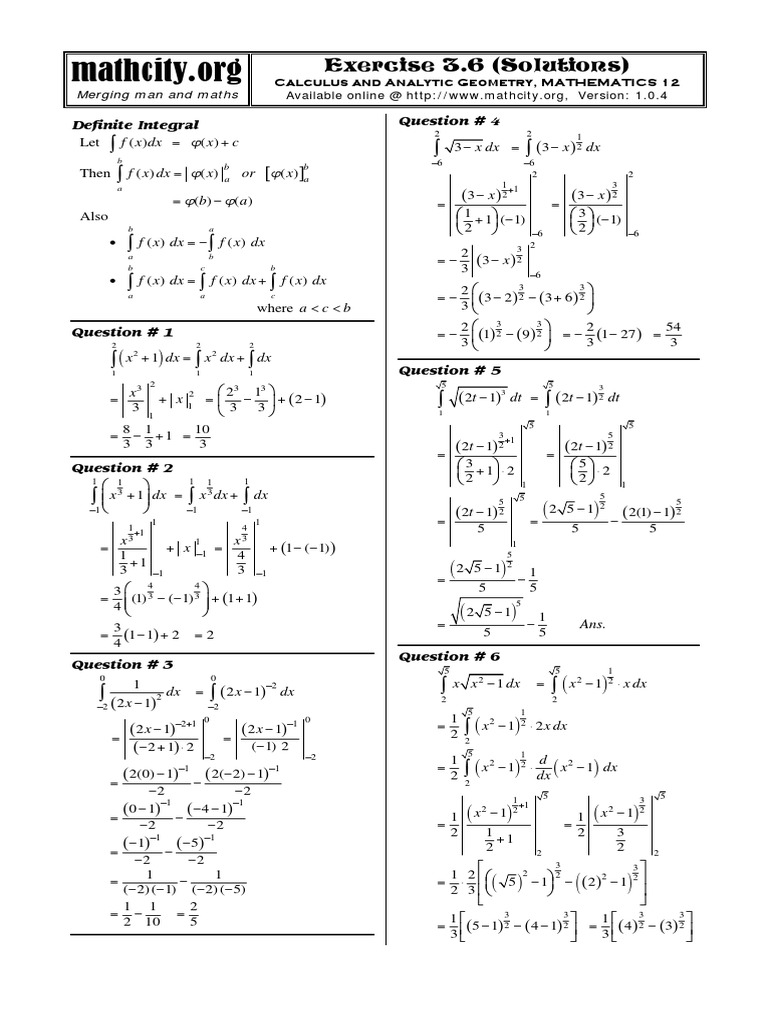 mathcity.org
Merging man and maths
Exercise 3.6 (Solutions)
Calculus and Analytic Geometry, MATHEMATICS 12
Available online @ http://www.mathcity.org, Version: 1.0.4
Definite Integral
Let ∫ f(x)dx = φ(x) + c
Then ∫_a^b f(x) dx = |φ(x)|_a^b or [φ(x)]_a^b
= φ(b) − φ(a)
Also
• ∫_a^b f(x) dx = −∫_b^a f(x) dx
• ∫_a^b f(x) dx = ∫_a^c f(x) dx + ∫_c^b f(x) dx
where a < c < b
Question # 1
∫_1^2 (x² + 1) dx = ∫_1^2 x² dx + ∫_1^2 dx
= |x³/3|_1^2 + |x|_1^2 = (2³/3 − 1³/3) + (2 − 1)
= 8/3 − 1/3 + 1 = 10/3
Question # 2
∫_{−1}^1 (x^{1/3} + 1) dx = ∫_{−1}^1 x^{1/3} dx + ∫_{−1}^1 dx
= |x^{1/3+1}/(1/3 + 1)|_{−1}^1 + |x|_{−1}^1 = |x^{4/3}/(4/3)|_{−1}^1 + (1 − (−1))
= 3/4 ((1)^{4/3} − (−1)^{4/3}) + (1 + 1)
= 3/4 (1 − 1) + 2 = 2
Question # 3
∫_{−2}^0 1/(2x − 1)² dx = ∫_{−2}^0 (2x − 1)^{−2} dx
= |(2x − 1)^{−2+1}/((−2 + 1) · 2)|_{−2}^0 = |(2x − 1)^{−1}/((−1) 2)|_{−2}^0
= (2(0) − 1)^{−1}/−2 − (2(−2) − 1)^{−1}/−2
= (0 − 1)^{−1}/−2 − (−4 − 1)^{−1}/−2
= (−1)^{−1}/−2 − (−5)^{−1}/−2
= 1/((−2)(−1)) − 1/((−2)(−5))
= 1/2 − 1/10 = 2/5
Question # 4
∫_{−6}^2 √(3 − x) dx = ∫_{−6}^2 (3 − x)^{1/2} dx
= |(3 − x)^{1/2+1}/((1/2 + 1)(−1))|_{−6}^2 = |(3 − x)^{3/2}/((3/2)(−1))|_{−6}^2
= −2/3 |(3 − x)^{3/2}|_{−6}^2
= −2/3 ((3 − 2)^{3/2} − (3 + 6)^{3/2})
= −2/3 ((1)^{3/2} − (9)^{3/2}) = −2/3 (1 − 27) = 54/3
Question # 5
∫_1^{√5} √((2t − 1)³) dt = ∫_1^{√5} (2t − 1)^{3/2} dt
= |(2t − 1)^{3/2+1}/((3/2 + 1) · 2)|_1^{√5} = |(2t − 1)^{5/2}/((5/2) · 2)|_1^{√5}
= |(2t − 1)^{5/2}/5|_1^{√5} = (2√5 − 1)^{5/2}/5 − (2(1) − 1)^{5/2}/5
= (2√5 − 1)^{5/2}/5 − 1/5
= √((2√5 − 1)^5)/5 − 1/5 Ans.
Question # 6
∫_2^{√5} x√(x² − 1) dx = ∫_2^{√5} (x² − 1)^{1/2} · x dx
= 1/2 ∫_2^{√5} (x² − 1)^{1/2} · 2x dx
= 1/2 ∫_2^{√5} (x² − 1)^{1/2} · d/dx (x² − 1) dx
= 1/2 |(x² − 1)^{1/2+1}/(1/2 + 1)|_2^{√5} = 1/2 |(x² − 1)^{3/2}/(3/2)|_2^{√5}
= 1/2 · 2/3 [((√5)² − 1)^{3/2} − ((2)² − 1)^{3/2}]
= 1/3 [(5 − 1)^{3/2} − (4 − 1)^{3/2}] = 1/3 [(4)^{3/2} − (3)^{3/2}]